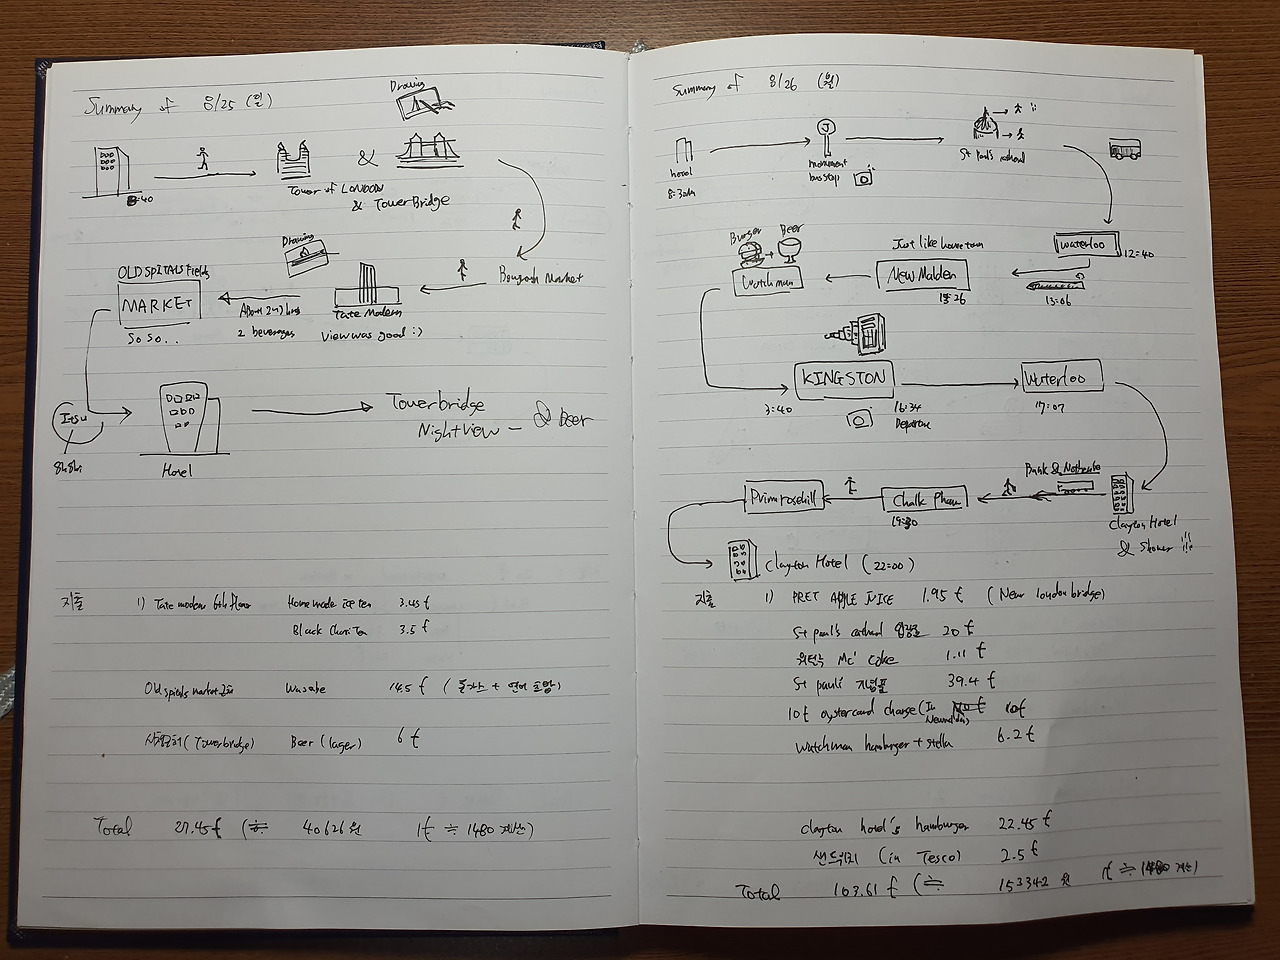 Summary of 8/25 (일)
Drawing
8:40
&
Tower of LONDON
& TowerBridge
Borough Market
Drawing
Tate Modern
View was good :)
About 2
2 beverages
OLD SPITALS Fields
MARKET
So So..
Itsu
Hotel
Towerbridge
Nightview - & Beer
지출 1) Tate modern 6th floor Home made ice tea 3.45 £
Black Chari Tea 3.5 £
Old spitals market 근처 Wasabe 14.5 £ (돈가스 + 연어 초밥)
(Towerbridge) Beer (lager) 6 £
Total 27.45 £ (≒ 40626 원 1£ ≒ 1480 계산)
Summary of 8/26 (월)
hotel
8:30
monument
bus stop
St Paul's cathedral
Waterloo
12:40
13:06
Just like home town
New Malden
13:26
Burger
Beer
Watchman
KINGSTON
3:40
16:34
Departure
Waterloo
17:07
Clayton Hotel
& Shower !!!
Bank &
Chalk Pham
19:30
Primrosehill
Clayton Hotel (22:00)
지출 1) PRET APPLE JUICE 1.95 £ (Near london bridge)
St paul's cathedral 입장료 20 £
워털루 Mc' Coke 1.11 £
St paul's 기념품 39.4 £
10£ oystercard charge (In Newmalden) 10£
Watchman hamburger + stella 6.2 £
Clayton hotel's hamburger 22.45 £
샌드위치 (in Tesco) 2.5 £
Total 103.61 £ (≒ 153342 원 1£ ≒ 1480 계산)